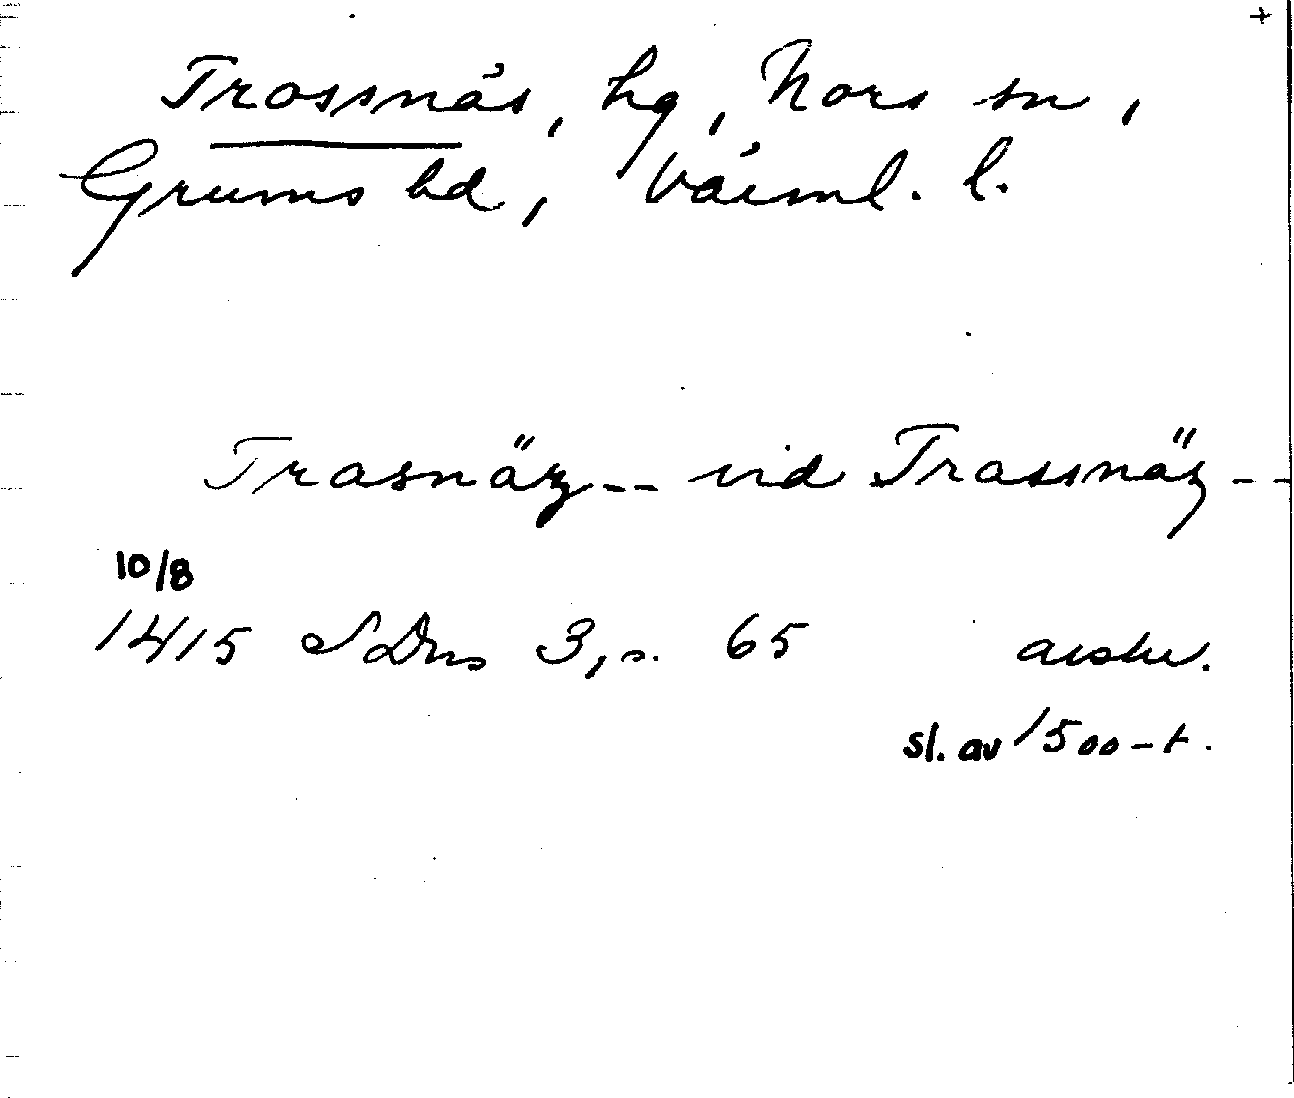 +
Trossnäs, hg, Nors sn,
Grums hd, Värml. l.
Trasnäz -- vid Trassnäz --
10/8
1415 SDns 3, s. 65 avskr.
sl. av 1500-t.